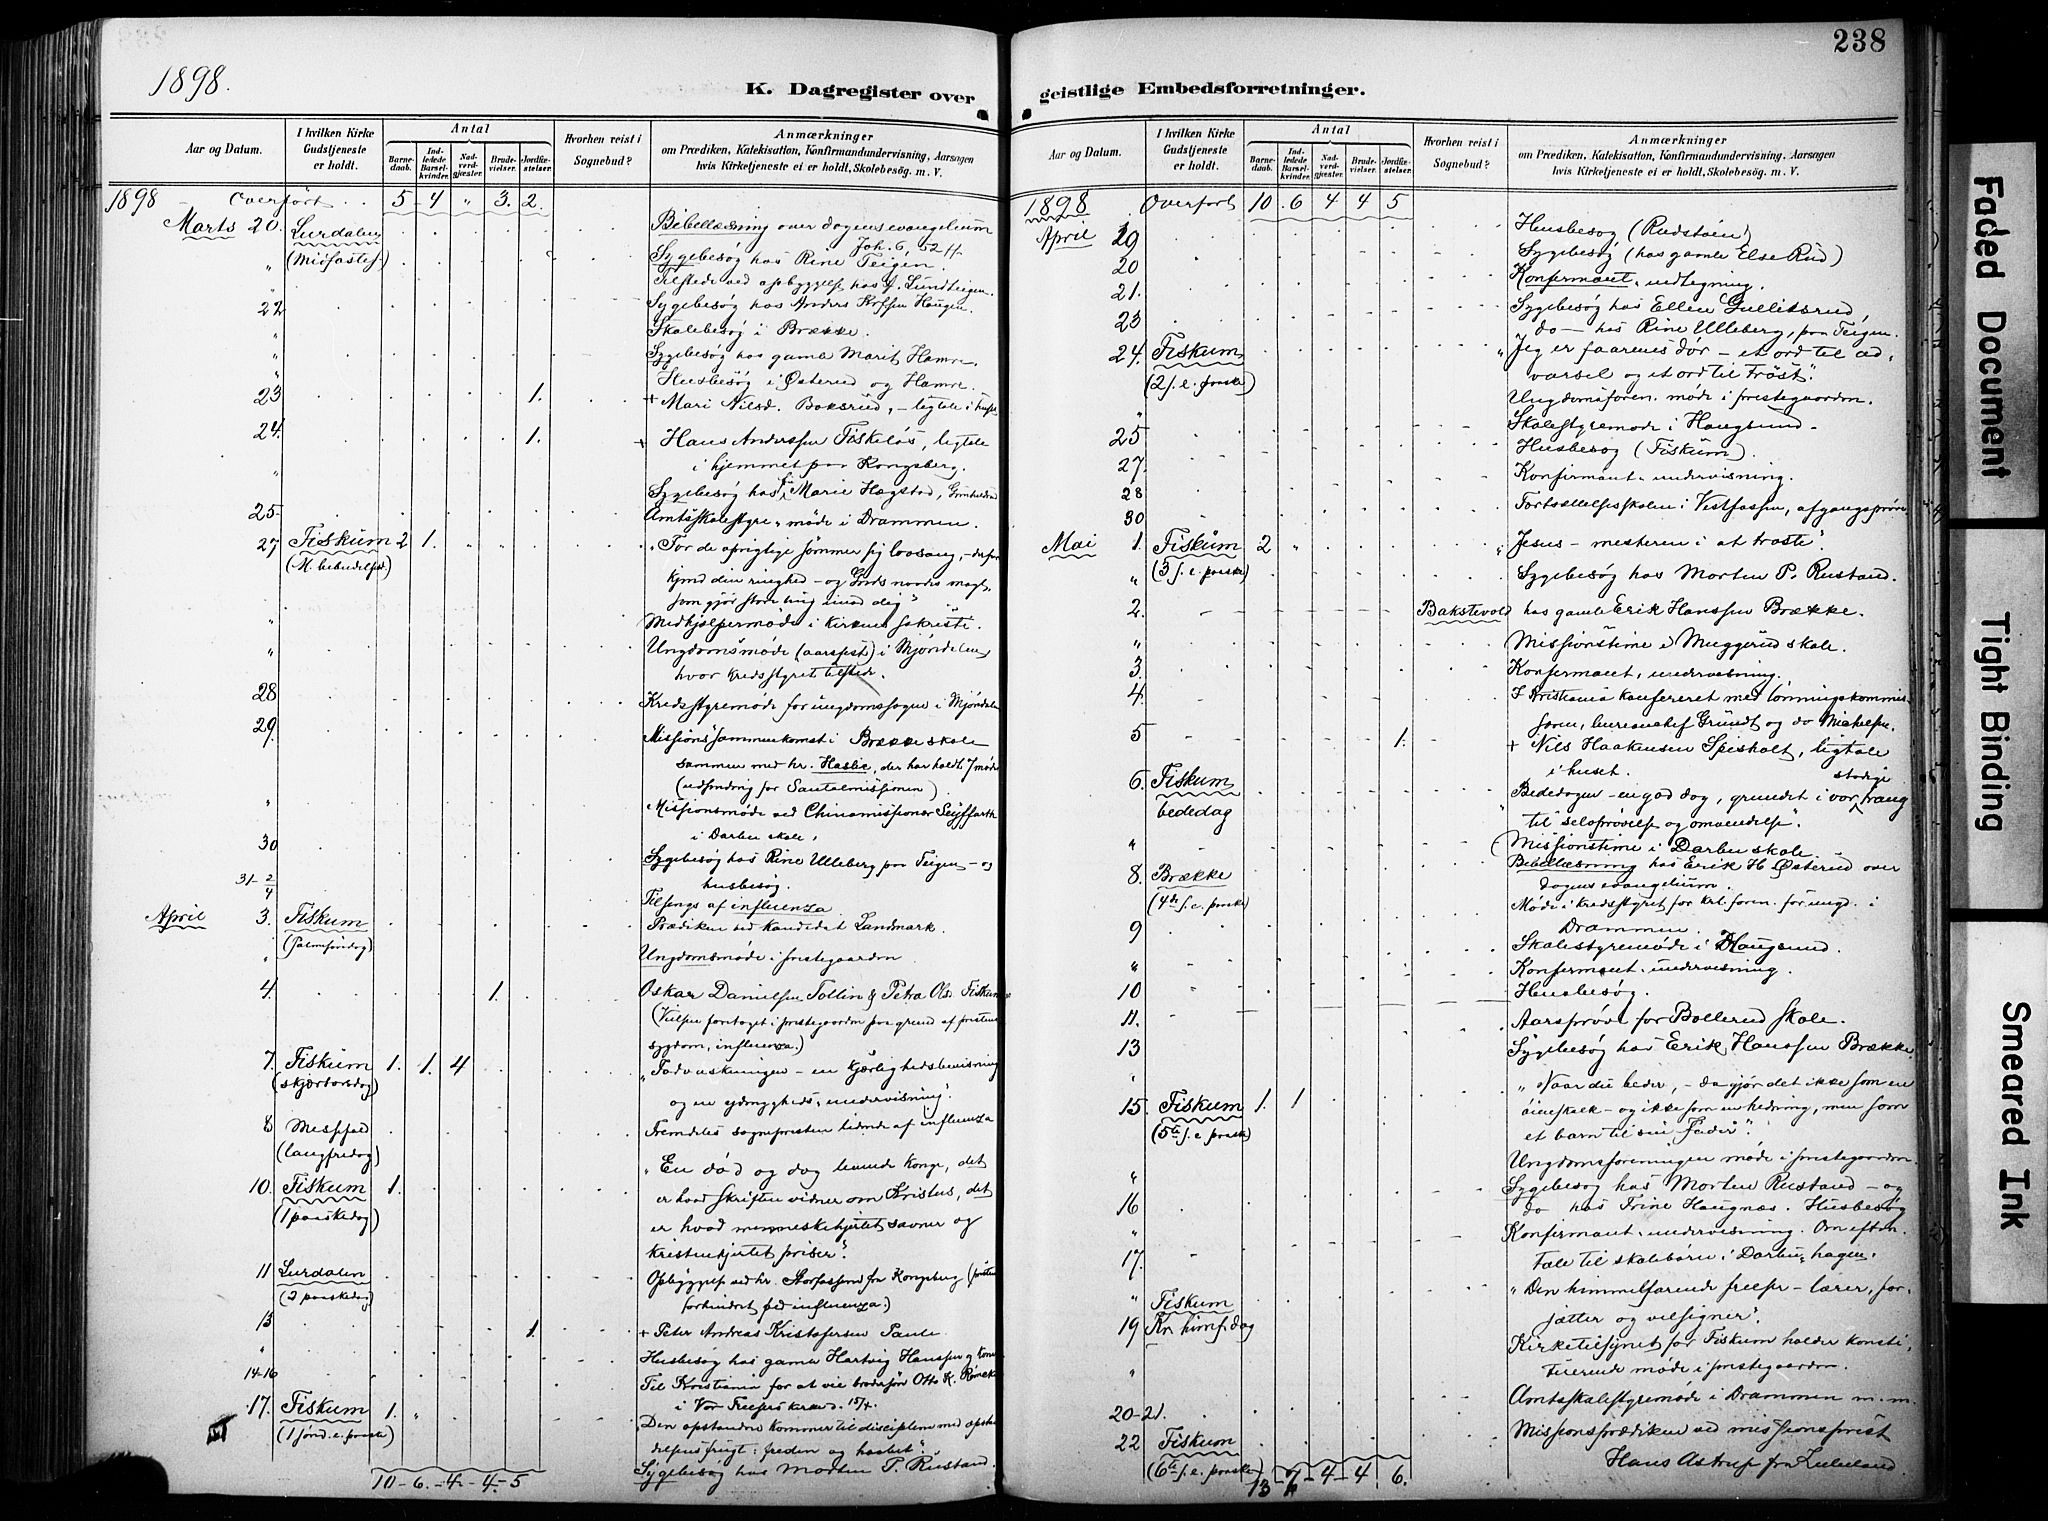 1898.
K. Dagregister over
Aar og Datum.
I hvilken Kirke Gudstjeneste er holdt.
Antal
Barnedaab.
Indledede Barselkvinder.
Nadverdgjæster.
Brudevielser.
Jordfæstelser.
Hvorhen reist i Sognebud?
Anmærkninger
om Prædiken, Katekisation, Konfirmandundervisning, Aarsagen
hvis Kirketjeneste ei er holdt, Skolebesøg. m. V.
1898 Overført 5 4 " 3. 2.
Marts 20. Lurdalen Bibellæsning over dagens evangelium
(Midfastes.) Joh. 6, 52 ff.
" Sygebesøg hos Rine Teigen.
" Tilstede ved opbyggelse hos J. Lundteigen.
22 Sygebesøg hos Anders Haugen.
" Skolebesøg i Brække.
" Sygebesøg hos gamle Marit Hamre
" Husbesøg i Østerud og Hamre.
23 1. + Mari Nilsd. Boksrud, - ligtale i huset
24. 1. + Hans Anderssen Fiskeløs, ligtale
i hjemmet paa Kongsberg.
" Sygebesøg hos Marie Hægstad,
25 Amtsskolestyre-møde i Drammen.
27 Fiskum 2 1. " " " "For de oprigtige sømmer sig lovsang, - derfor
(M. bebudelsesd.) kjend din ringhed - og Guds naades magt,
som gjør store ting imod dig"
" Medhjælpermøde i Kirkens sakristi.
" Ungdomsmøde (aarsfest) i Mjøndalen,
hvor kredsstyret tilstede.
28 Kredsstyremøde for ungdomssagen i Mjøndalen
29. Missionssammenkomst i Brække skole
sammen med hr. Haslie, der har holdt 7 møder
(udsending for Santalmissionen)
" Missionsmøde ved Chinamissionær Seyffarth
i Darbu skole,
30 Sygebesøg hos Rine Ulleberg paa Teigen - og
husbesøg.
31-2/4 Tilsengs af influenza
April 3. Fiskum Prædiken ved kandidat Landmark.
(palmesøndag)
" Ungdomsmøde i prestegaarden
4. 1. Oskar Danielsen Tollin & Petra Ols. Fiskum
(Vielsen foretaget i prestegaarden paa grund af prestens
sygdom, influenza.)
7. Fiskum 1. 1. 4 "Fodvaskningen - en kjærlighedsbevisning
(skjærtorsdag) og en ydmygheds-undervisning".
8 Messfald Fremdeles sognepresten lidende af influenza
(langfredag)
10. Fiskum 1. "En død og dog levende konge, det
(1 paaskedag) er hvad skriften vidner om Kristus, det
er hvad menneskehjertet savner og
kristenhjertet priser".
11 Lurdalen Opbyggelse ved hr. Storfossene fra Kongsberg (presten
(2 paaskedag) forhindret ved influenza.)
13 1. + Peter Andreas Kristofersen Paule
" Husbesøg hos gamle Hartvig Hanssen og kone
14-16 Til Kristiania for at vie brodersøn Otto K.
i Vor Frelsers kirke d. 15/4.
17. Fiskum 1. " Den opstandne kommer til disciplene med opstan-
(1 sønd. e. paaske) delsens frugt: freden og haabet".
Sygebesøg hos Morten P. Rustand.
10 - 6. - 4 - 4. - 5
238
geistlige Embedsforretninger.
Aar og Datum.
I hvilken Kirke Gudstjeneste er holdt.
Antal
Barnedaab.
Indledede Barselkvinder.
Nadverdgjæster.
Brudevielser.
Jordfæstelser.
Hvorhen reist i Sognebud?
Anmærkninger
om Prædiken, Katekisation, Konfirmandundervisning, Aarsagen
hvis Kirketjeneste ei er holdt, Skolebesøg. m. V.
1898 Overført 10 6 4 4 5
April 19 Husbesøg (Rudstøen)
20 Sygebesøg (hos gamle Else Rud)
21. Konfirmant-indtegning.
23 Sygebesøg hos Ellen Gulliksrud,
do - hos Rine Ulleberg, paa Teigen.
24. Fiskum "Jeg er faarenes dør - et ord til ad-
(2 s. e. paaske) varsel og et ord til trøst".
" Ungdomsforen. møde i prestegaarden.
25 Skolestyremøde i Haugsund.
27. Husbesøg (Fiskum).
28 Konfirmant-undervisning.
30 Fortsættelsesskolen i Vestfossen, afgangsprøve
Mai 1. Fiskum 2 " "Jesus - mesteren i at trøste".
(3 s. e. paaske)
" Sygebesøg hos Morten P. Rustand.
2. Bakstevold hos gamle Erik Hanssen Brække.
" Missionstime i Muggerud skole.
3. Konfirmant-undervisning.
4. I Kristiania konfereret med lønningskommis-
sionen, bureauchef Gründt og do Mickelsen.
5 1. + Nils Haakensen Spisholt, ligtale
i huset.
6. Fiskum Bededagen - en god dag, grundet i vor stadige trang
bededag til selvprøvelse og omvendelse".
" Missionstime i Darbu skole.
8. Brække Bibellæsning hos Erik H. Østerud over
(4de s. e. paaske) dagens evangelium.
9 Møde i kredsstyret for krl. foren. for ungd. i
Drammen.
" Skolestyremøde i Haugsund.
10 Konfirmant-undervisning.
" Husbesøg.
11. Aarsprøve for Bollerud skole.
13 Sygebesøg hos Erik Hanssen Brække
15 Fiskum 1. 1 "Naar du beder, - da gjør det ikke som en
(5te s. e. paaske) øienskalk - og ikke som en hedning, men som
et barn til sin Fader".
" Ungdomsforeningen møde i prestegaarden.
16 Sygebesøg hos Morten Rustand - og
do hos Trine Haugnæs. Husbesøg
" Konfirmant-undervisning. Om eftm.
17. tale til skolebørn i Darbu-hagen.
" Fiskum "Den himmelfarende frelser - lærer, for-
19 Kr. himf. dag jætter og velsigner".
" Kirketilsynet for Fiskum holder konsti-
tuerende møde i prestegaarden.
20-21. Amtsskolestyremøde i Drammen m.m.
22 Fiskum Missionsprædiken ved missionsprest
(6te s. e. paaske) Hans Astrup fra Zululand.
13 7 - 4 4 6.
Faded Document
Tight Binding
Smeared Ink